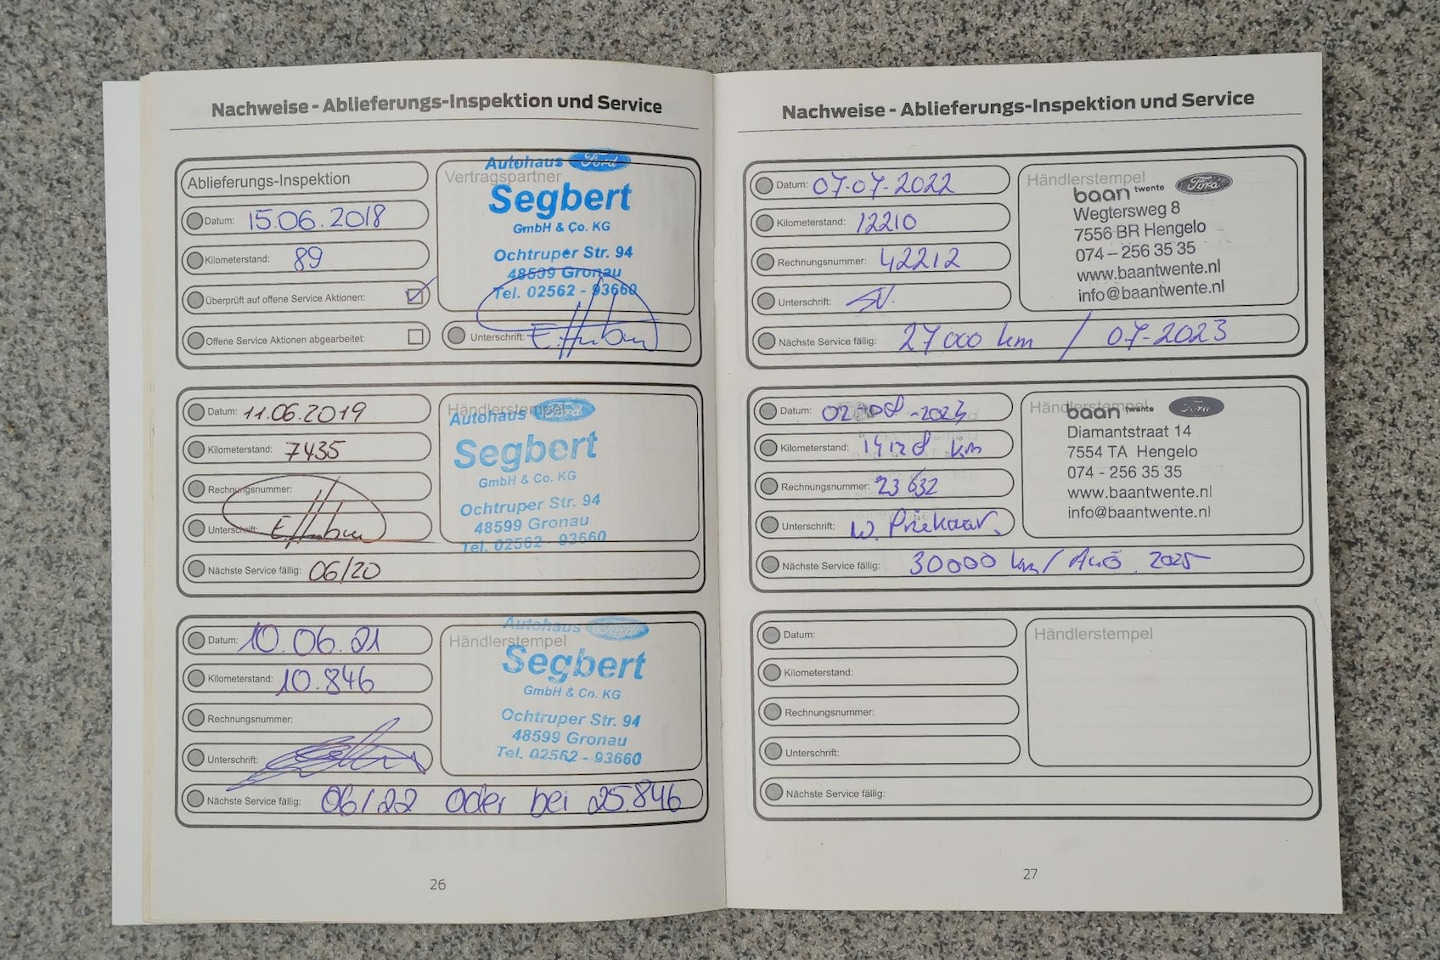 Nachweise - Ablieferungs-Inspektion und Service
Ablieferungs-Inspektion
Datum: 15.06.2018
Kilometerstand: 89
Überprüft auf offene Service Aktionen:
Offene Service Aktionen abgearbeitet:
Vertragspartner
Autohaus Ford
Segbert
GmbH & Co. KG
Ochtruper Str. 94
48599 Gronau
Tel. 02562 - 93660
Unterschrift:
Datum: 11.06.2019
Kilometerstand: 7435
Rechnungsnummer:
Unterschrift:
Nächste Service fällig: 06/20
Händlerstempel
Autohaus Ford
Segbert
GmbH & Co. KG
Ochtruper Str. 94
48599 Gronau
Tel. 02562 - 93660
Datum: 10.06.21
Kilometerstand: 10.846
Rechnungsnummer:
Unterschrift:
Nächste Service fällig: 06/22 oder bei 25.846
Händlerstempel
Autohaus
Segbert
GmbH & Co. KG
Ochtruper Str. 94
48599 Gronau
Tel. 02562 - 93660
26
Nachweise - Ablieferungs-Inspektion und Service
Datum: 07-07-2022
Kilometerstand: 12210
Rechnungsnummer: 42212
Unterschrift:
Nächste Service fällig: 27000 km / 07-2023
Händlerstempel
baan twente Ford
Wegtersweg 8
7556 BR Hengelo
074 – 256 35 35
www.baantwente.nl
info@baantwente.nl
Datum:
Kilometerstand: 14128 km
Rechnungsnummer: 23632
Unterschrift:
Nächste Service fällig: 30000 km / 2025
Händlerstempel
baan twente Ford
Diamantstraat 14
7554 TA Hengelo
074 - 256 35 35
www.baantwente.nl
info@baantwente.nl
Datum:
Kilometerstand:
Rechnungsnummer:
Unterschrift:
Nächste Service fällig:
Händlerstempel
27